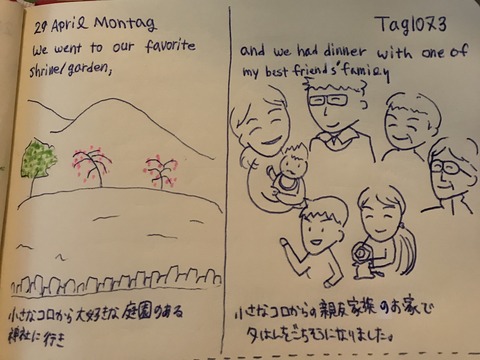 29 April Montag
We went to our favorite
shrine/garden,
小さなコロから大好きな庭園のある
神社に行き
Tag1073
and we had dinner with one of
my best friends' family
小さなコロからの親友家族のお家で
夕はんをごちそうになりました。